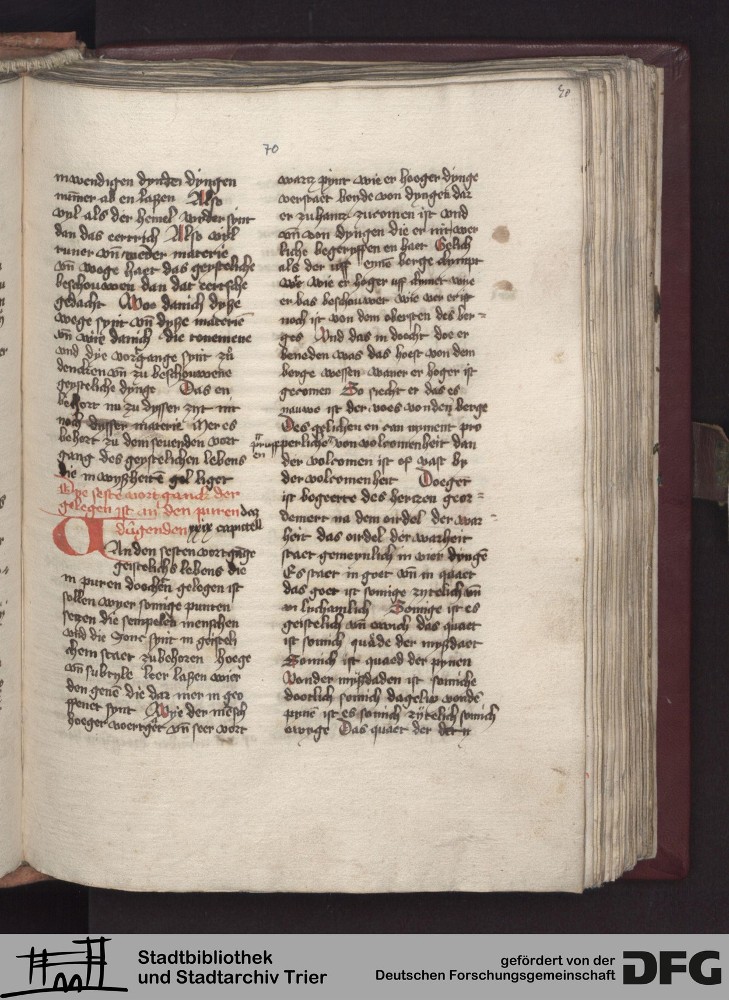 70
inwendigen dynden dyngen
nummer ab en laßen Also
vyl als der hemel wyder synt
dan das eertrich Also vyl
runer vnd weder materie
vnd woge haet das geysteliche
beschouwen dan dat eertsche
gedacht Woo danich dyße
wege synt vnd dyße materie
vnd wie danich die
vnd dye vorgange synt zů
dencken vnd zů beschouwene
geysteliche dynge Das en
behort nů zů dysser zyt nit
noch dysser materie Mer es
behort zů dem seuenden vort
gang des geystelichen lebens
die in wyßheite gelliget
Dye seste vortganck der
gelegen ist an den puren
dügenden xxix capitell
An den sesten vortgāge
geistelichs lebens die
in puren doochen gelegen ist
sollen wyer somige punten
setzen die sempelen menschen
vnd die Jonc synt in geisteli
chem staet zubehoren hoege
vnd subtyle leer laßen wier
den genē die dar mer in geo
ffenet synt Wye der mēsch
hoeger voertget vnd seer vort
wartz pynt wie er hooger dynge
verstaet bende von dyngen dar
er zu hantz zucomen ist vnd
von dyngen die er nit wer
liche begeryffen en haet Gelich
als der uff enne berge clympt
wie er hoger uff clymet wie
er bas beschouwet wie ver er ist
noch ist von dem obersten des ber=
ges Vnd das in doocht doe er
beneden was das hoest von dem
berge wesen waner er hoger ist
gecomen So siecht er das es
nauwe ist der voes von den berge
Des gelichen en can nyment pro
perliche von volcomenheit dan
der volcomen ist of vast by
der volcomenheit Doeget
ist bogeerte des hertzen geor=
demert na dem ordel der war=
heit das ordel der warheit
staet gemeynlich in vier dyngē
Es staet in goet vnd in quaet
das goet ist somige zytelich vnd
vn lichamlich Somige ist es
geistelich vnd ewich das quaet
ist somich quade der myßdaet
Somich ist quaed der pynen
Vonder myßdaden ist somiche
dootlich somich dagelix vondē
pynē ist es somich zytelich somich
ewyge Das quaet der
Stadtbibliothek
und Stadtarchiv Trier
gefördert von der
Deutschen Forschungsgemeinschaft
DFG